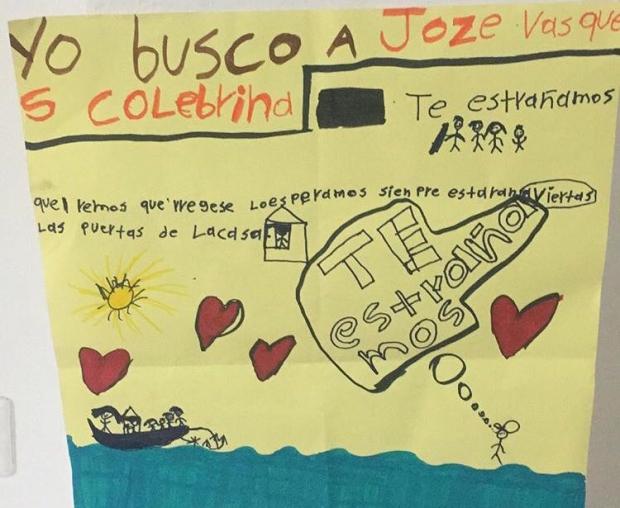 Yo busco A Joze Vasque
s colebrina
Te estrañamos
quel remos que'rregese Loesperamos sienpre estaran aviertas
Las puertas de Lacasa
TE
estraña
mos